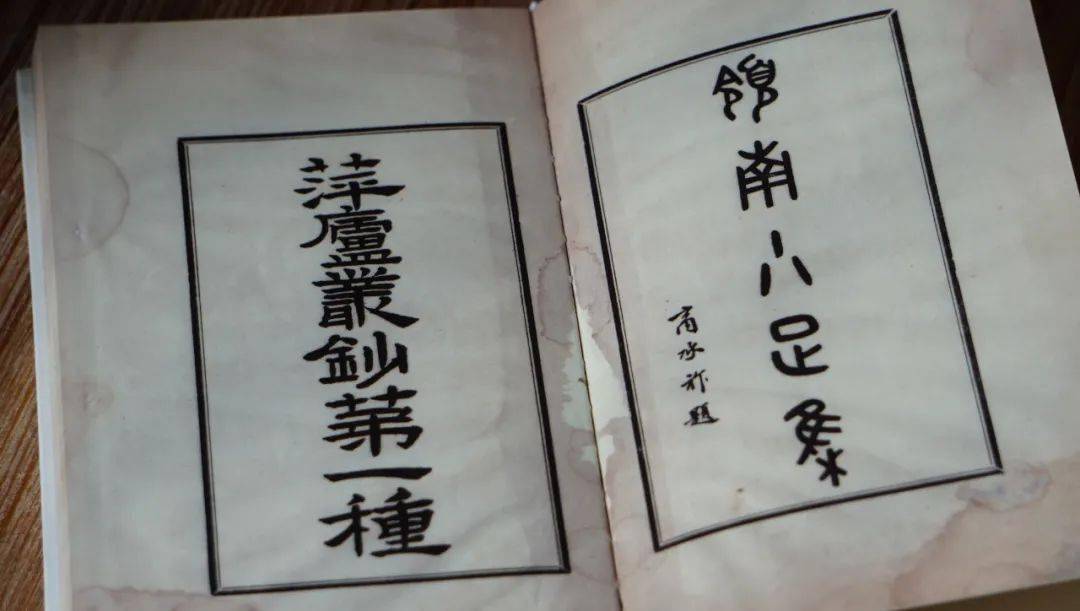 領南小疋集
商承祚題
萍廬叢鈔第一種